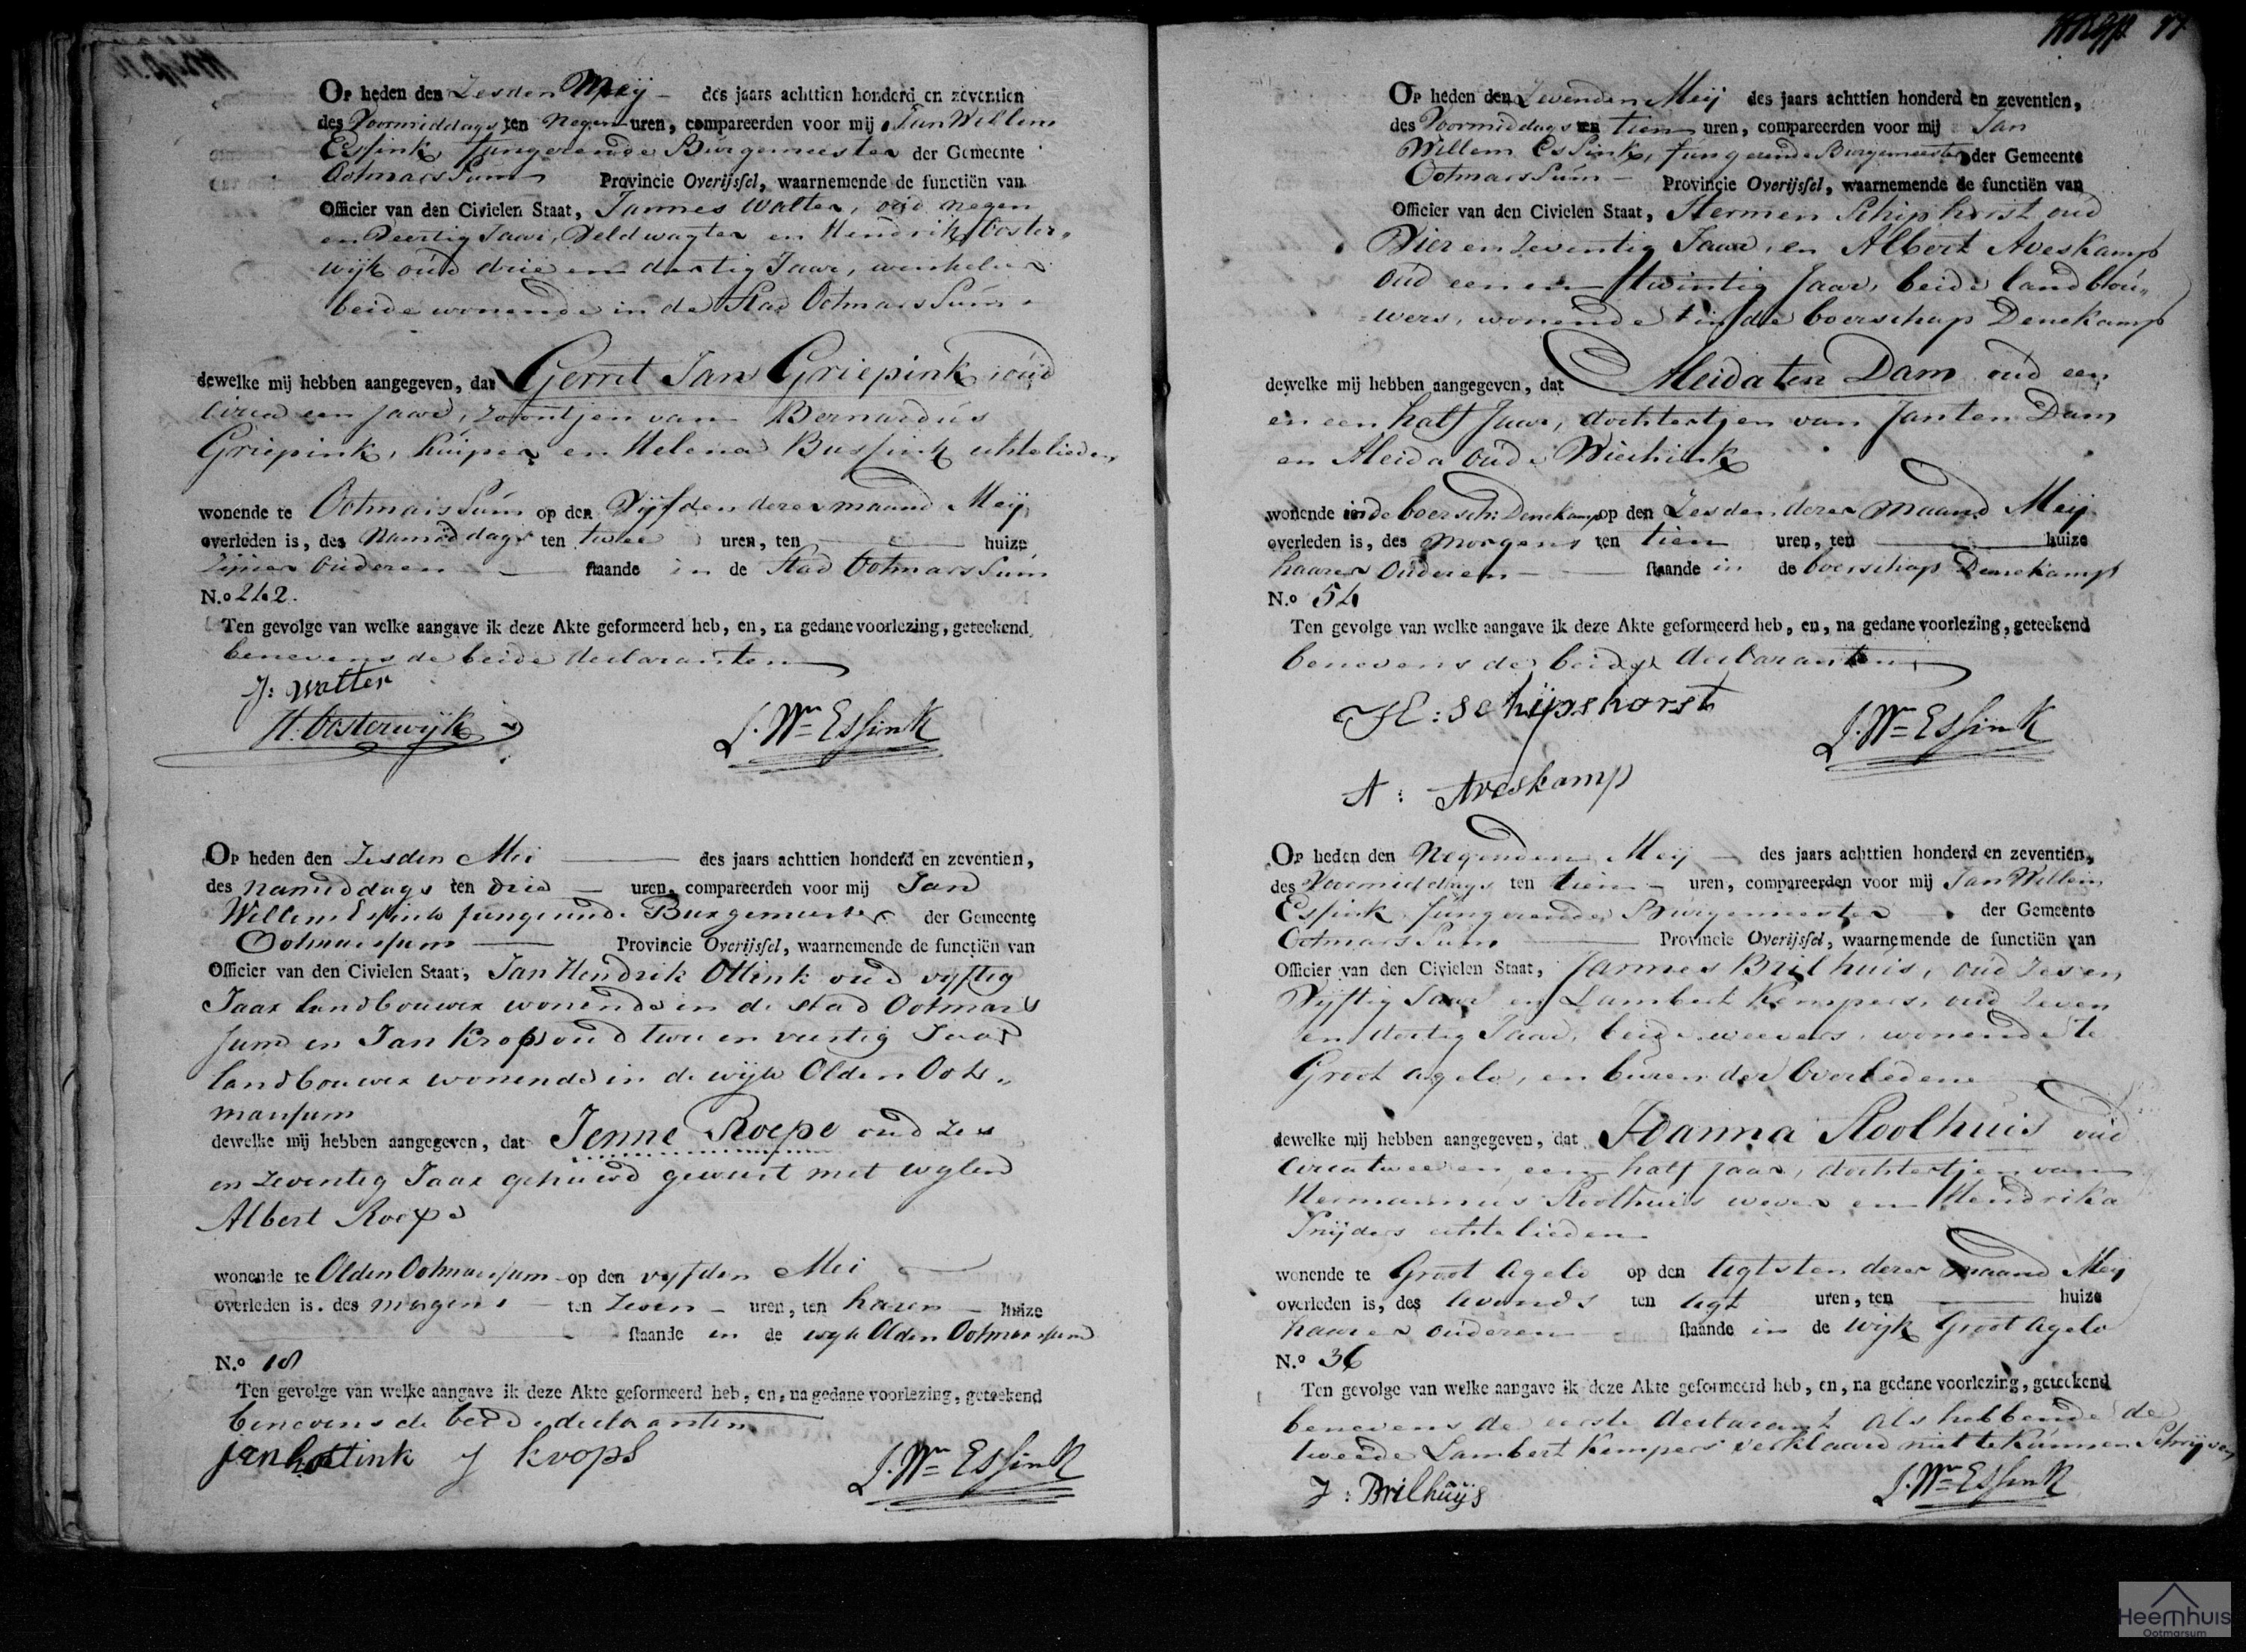 Op heden den Zesden Meij – des jaars achttien honderd en zeventien
des Voormiddags ten Negen uren, compareerden voor mij Jan Willem
Essink, fungerende Burgemeester der Gemeente
Ootmarssum Provincie Overijssel, waarnemende de functiën van
Officier van den Civielen Staat, Jannes Walter, oud negen
en veertig Jaar, Veldwagter en Hendrik Ooster„
wijk oud drie en dertig Jaar, winkelier
beide wonende in de Stad Ootmarssum
dewelke mij hebben aangegeven, dat Gerrit Jan Griepink oud
circa een Jaar, zoontjen van Bernardus
Griepink, Kuiper en Helena Bussink echtelieden
wonende te Ootmarssum op den Vijfden derer maand Meij
overleden is, des Namiddags ten twee uren, ten — huize
Zijner Ouderen — staande in de Stad Ootmarssum
N.o 242.
Ten gevolge van welke aangave ik deze Akte geformeerd heb, en, na gedane voorlezing, geteekend
benevens de beide declaranten
J: Walter
H: Oosterwijk
J. Wm Essink
Op heden den Zesden Mei — des jaars achttien honderd en zeventien,
des namiddags ten drie – uren, compareerden voor mij Jan
Willem Essink fungerende Burgemeester der Gemeente
Ootmarssum — Provincie Overijssel, waarnemende de functiën van
Officier van den Civielen Staat, Jan Hendrik Ottink oud vyftig
Jaar landbouwer wonende in de stad Ootmars
sum en Jan Krops oud twee en veertig Jaar
landbouwer wonende in de wijk Olden Oot„
marsum
dewelke mij hebben aangegeven, dat Jenne Roepe oud zes
en zeventig Jaar gehuwd geweest met wylen
Albert Roepe
wonende te Olden Ootmarssum op den vyfden Mei
overleden is, des morgens – ten Zeven – uren, ten haren – huize
— staande in de wyk Olden Ootmarssum
N.o 18
Ten gevolge van welke aangave ik deze Akte geformeerd heb, en, na gedane voorlezing, geteekend
benevens de beide declaranten
J Krops
J. Wm Essink
Op heden den Zevenden Meij des jaars achttien honderd en zeventien,
des Voormiddags ten tien uren, compareerden voor mij Jan
Willem Essink, fungerende Burgemeester der Gemeente
Ootmarssum – Provincie Overijssel, waarnemende de functiën van
Officier van den Civielen Staat, Hermen Schiphorst oud
Vier en Zeventig Jaar, en Albert Aveskamp
oud een en twintig Jaar, beide landbou„
wers, wonende in de boerschap Denekamp
dewelke mij hebben aangegeven, dat Aleida ten Dam oud een
en een half Jaar, dochtertjen van Jan ten Dam
en Aleida Oude
wonende in de boersch: Denekamp op den Zesden derer maand Meij
overleden is, des morgens ten tien uren, ten — huize
haarer Ouderen – staande in de boerschap Denekamp
N.o 54
Ten gevolge van welke aangave ik deze Akte geformeerd heb, en, na gedane voorlezing, geteekend
benevens de beide declaranten
H: Schijpshorst
J. Wm Essink
A: Aveskamp
Op heden den Negenden Meij – des jaars achttien honderd en zeventien,
des Voormiddags ten tien – uren, compareerden voor mij Jan Willem
Essink fungerende Burgemeester der Gemeente
Ootmarssum — Provincie Overijssel, waarnemende de functiën van
Officier van den Civielen Staat, Jannes Brilhuis, oud Zes en
Vijftig Jaar en Lambert Kempers, oud Zeven
en dertig Jaar, beide weevers, wonende te
Groot Agelo, en buren der Overledene
dewelke mij hebben aangegeven, dat Joanna Roolhuis oud
Circa twee en een half Jaar, dochtertjen van
Hermannus Roolhuis wever en Hendrika
Snijders echtelieden
wonende te Groot Agelo op den Agtsten derer maand Meij
overleden is, des Avonds ten Agt uren, ten — huize
haarer ouderen staande in de wijk Groot Agelo
N.o 36
Ten gevolge van welke aangave ik deze Akte geformeerd heb, en, na gedane voorlezing, geteekend
benevens de eerste declarant als hebbende de
tweede Lambert Kempers verklaard niet te kunnen Schrijven
J: Brilhuijs
J. Wm Essink
Heemhuis
Ootmarsum